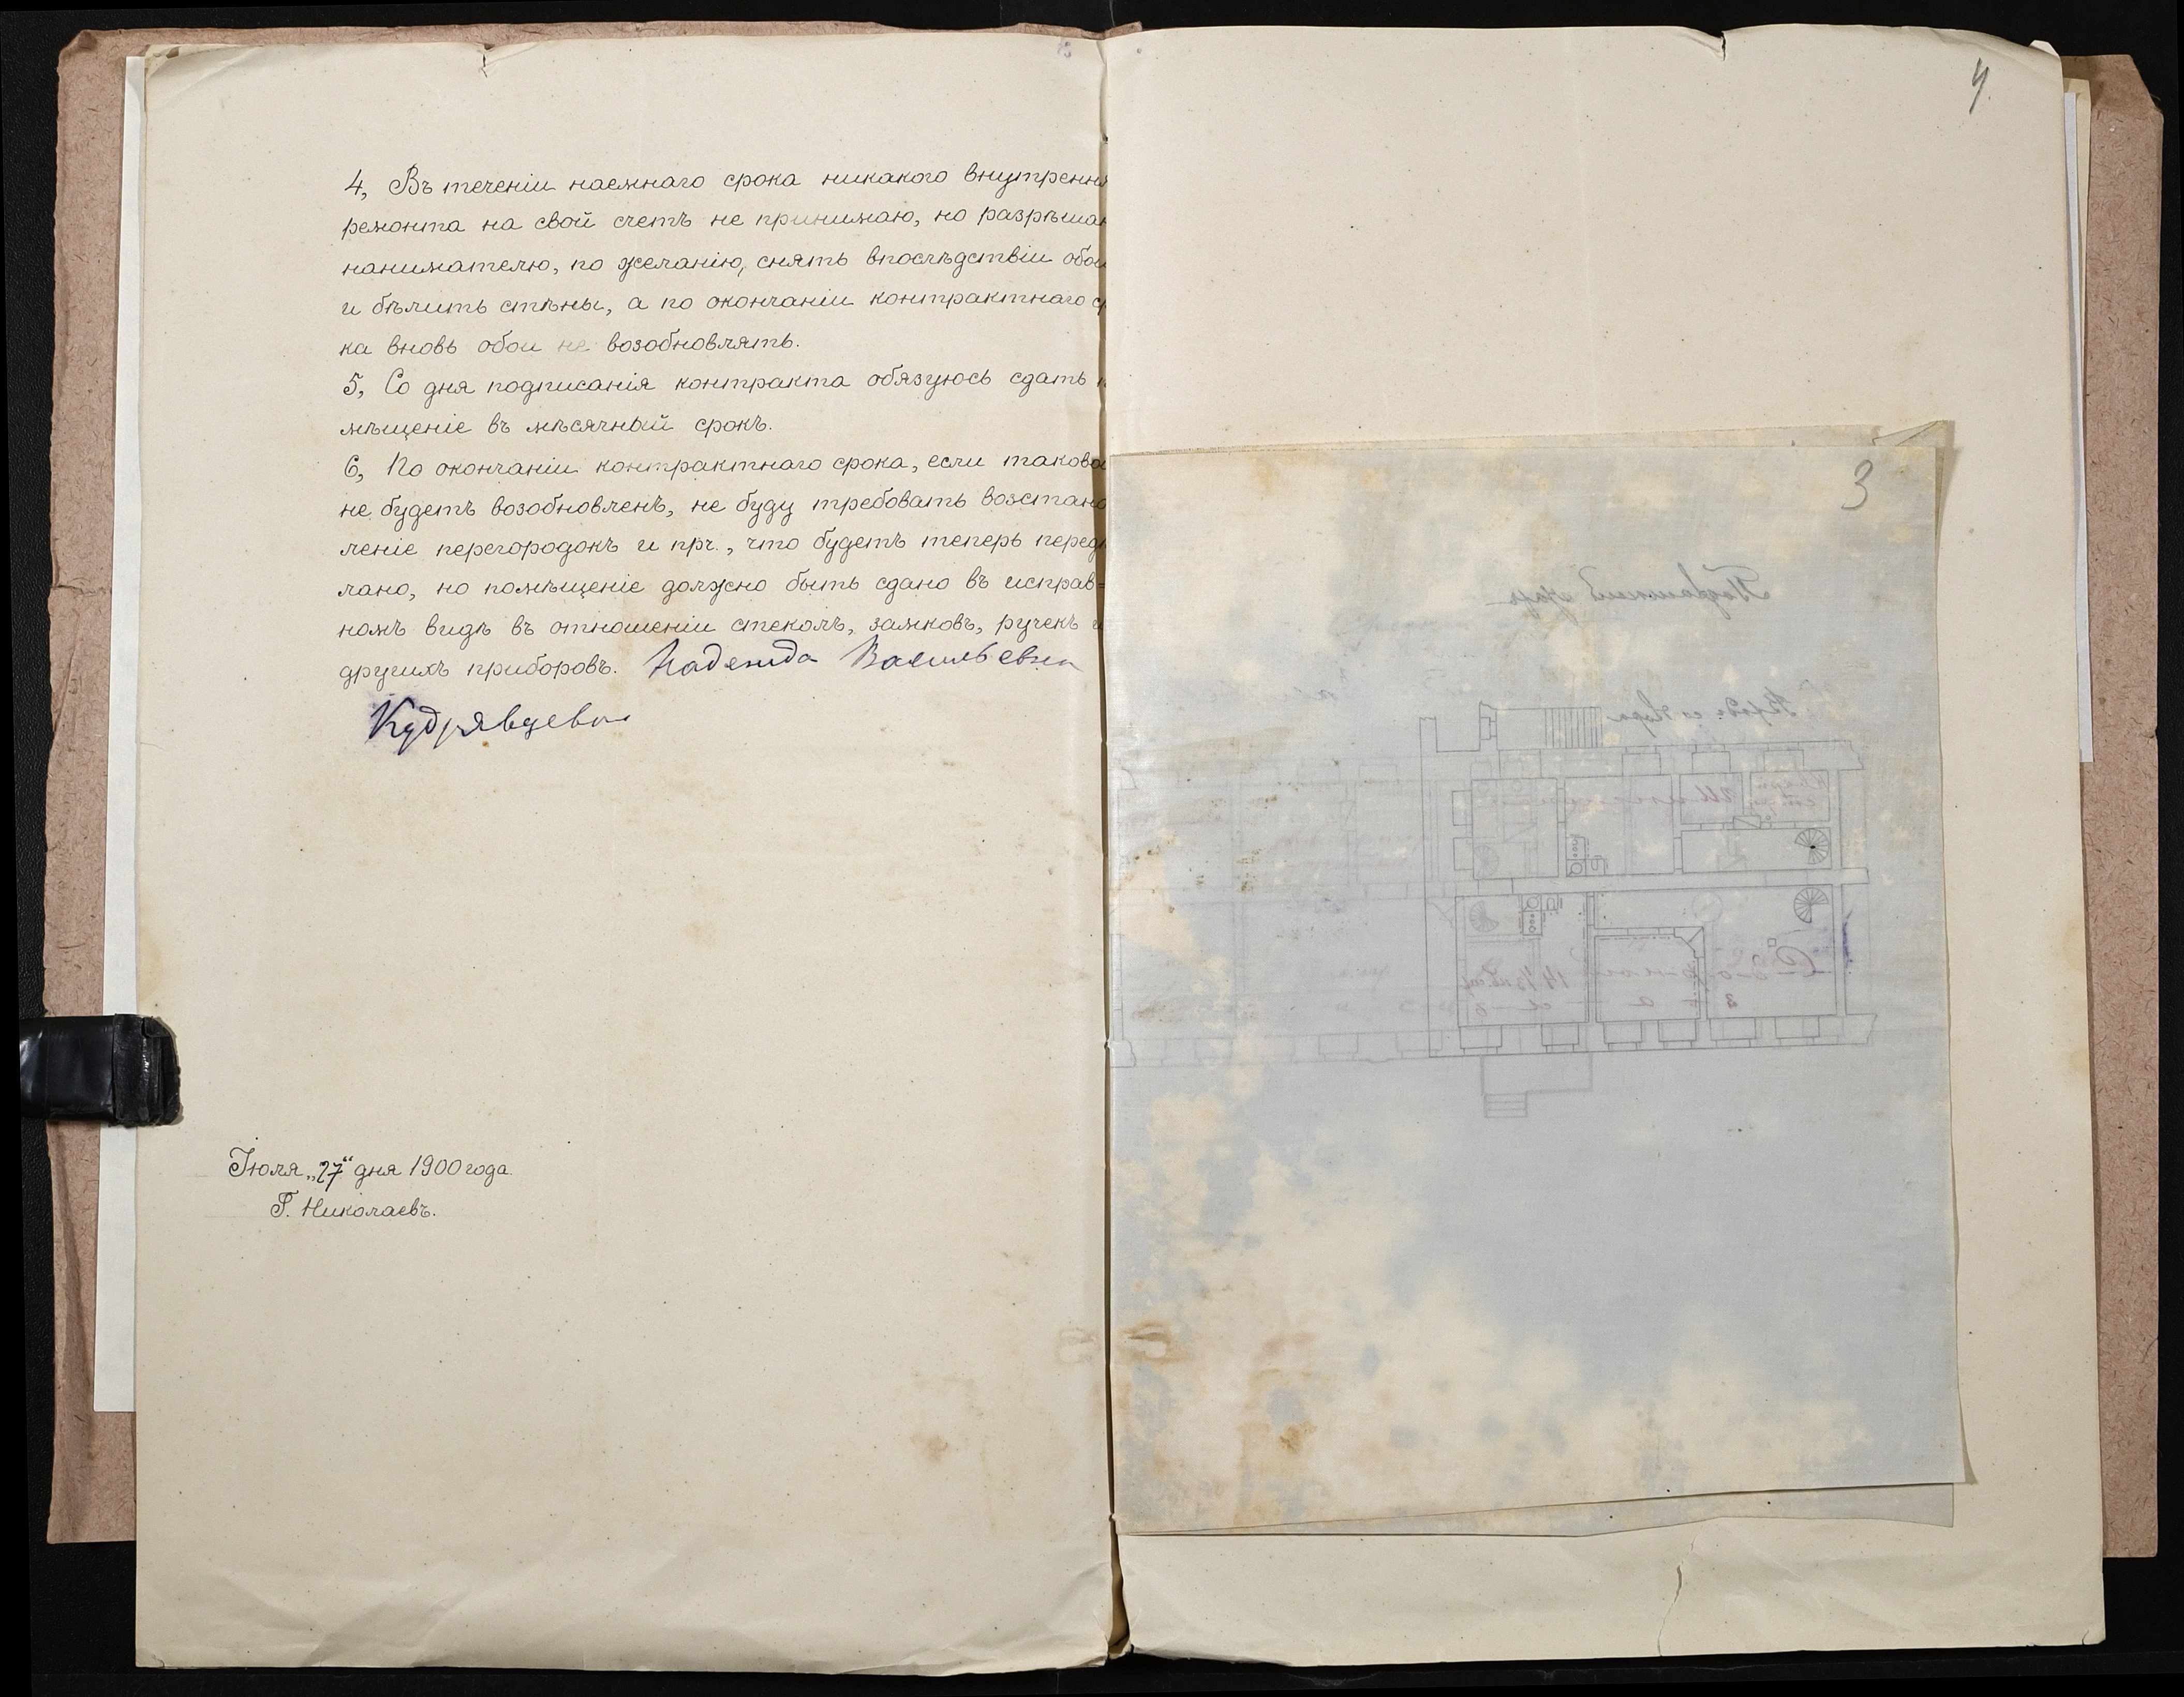 4, Въ теченіи наемнаго срока никакого внутрення
ремонта на свой счетъ не принимаю, но разрѣшаю
нанимателю, по желанію, снять впослѣдствіи обои
и бѣлить стѣны, а по окончаніи контрактнаго с
ка вновь обои не возобновлять.
5, Со дня подписанія контракта обязуюсь сдать
мѣщеніе въ мѣсячный срокъ.
6, По окончаніи контрактнаго срока, если таково
не будетъ возобновленъ, не буду требовать возстано
леніе перегородокъ и пр., что будетъ теперь передѣ
лано, но помѣщеніе должно быть сдано въ исправ=
номъ видѣ въ отношеніи стеколъ, замковъ, ручекъ и
другихъ приборовъ. Надежда Васильевна
Кудрявцева
Іюля „27“ дня 1900 года.
Г. Николаевъ.
4.
3